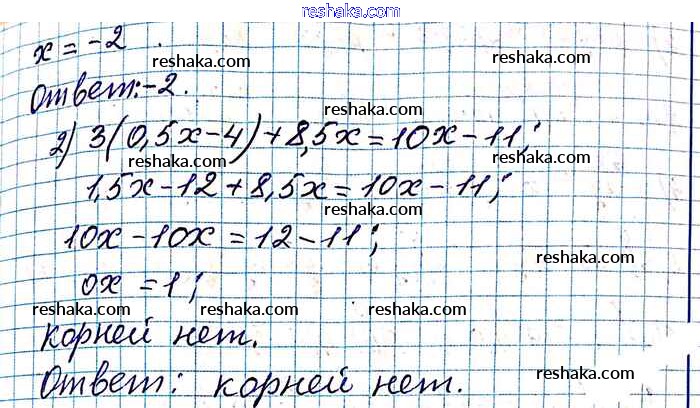 reshaka.com
x = -2
reshaka.com reshaka.com
Ответ: -2.
reshaka.com
2) 3(0,5x-4)+8,5x=10x-11;
1,5x-12+8,5x=10x-11;
reshaka.com reshaka.com
10x-10x=12-11;
reshaka.com
0x=1;
reshaka.com reshaka.com
корней нет.
reshaka.com
Ответ: корней нет.
reshaka.com